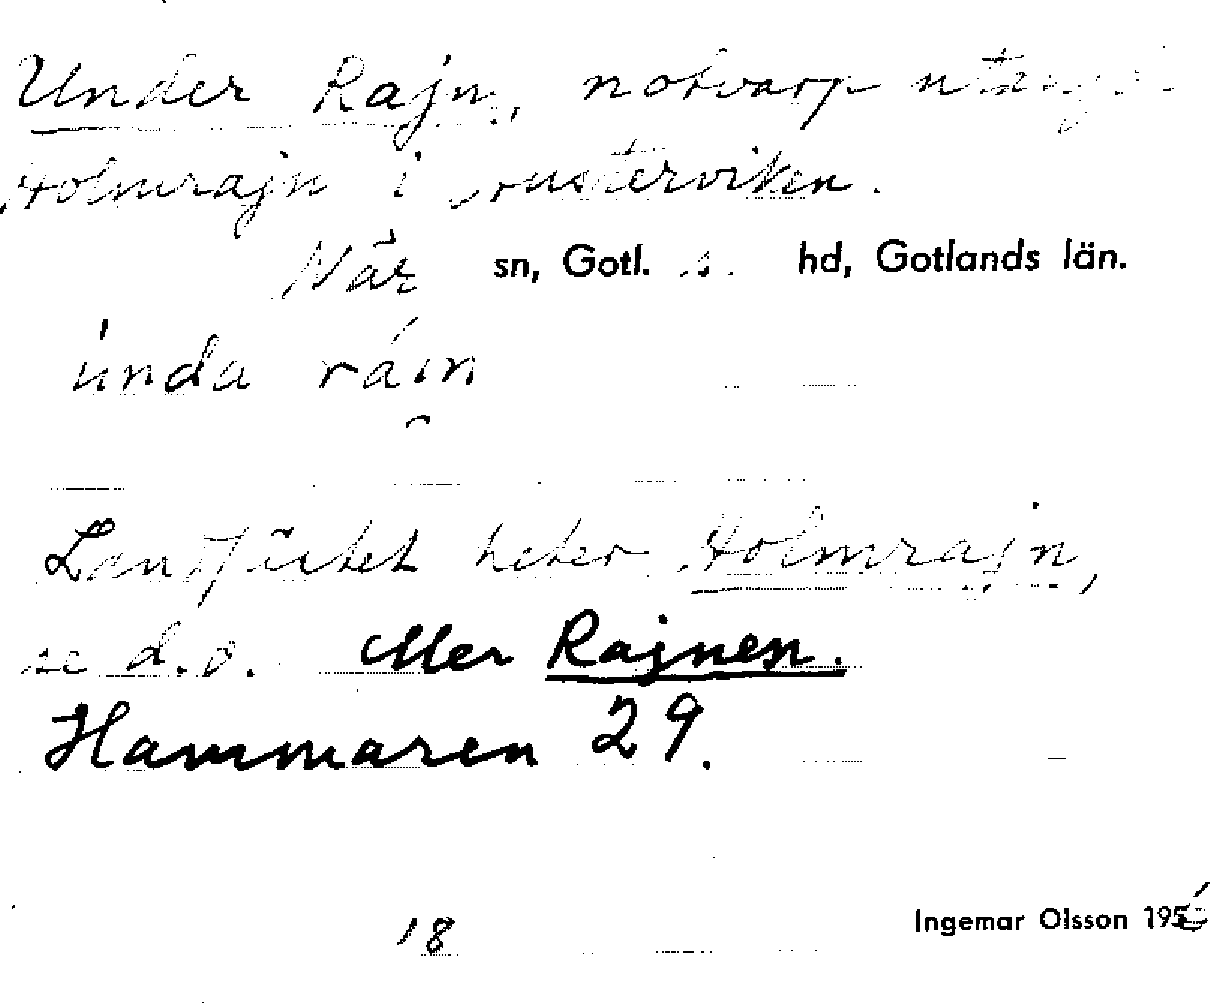 Under Rajn, notvarp utanför
Holmrajn i Austerviken.
När sn, Gotl. s. hd, Gotlands län.
únda rái̯n
Landfästet heter Holmrajn,
se d.o. eller Rajnen.
Hammaren 29.
18 Ingemar Olsson 1956